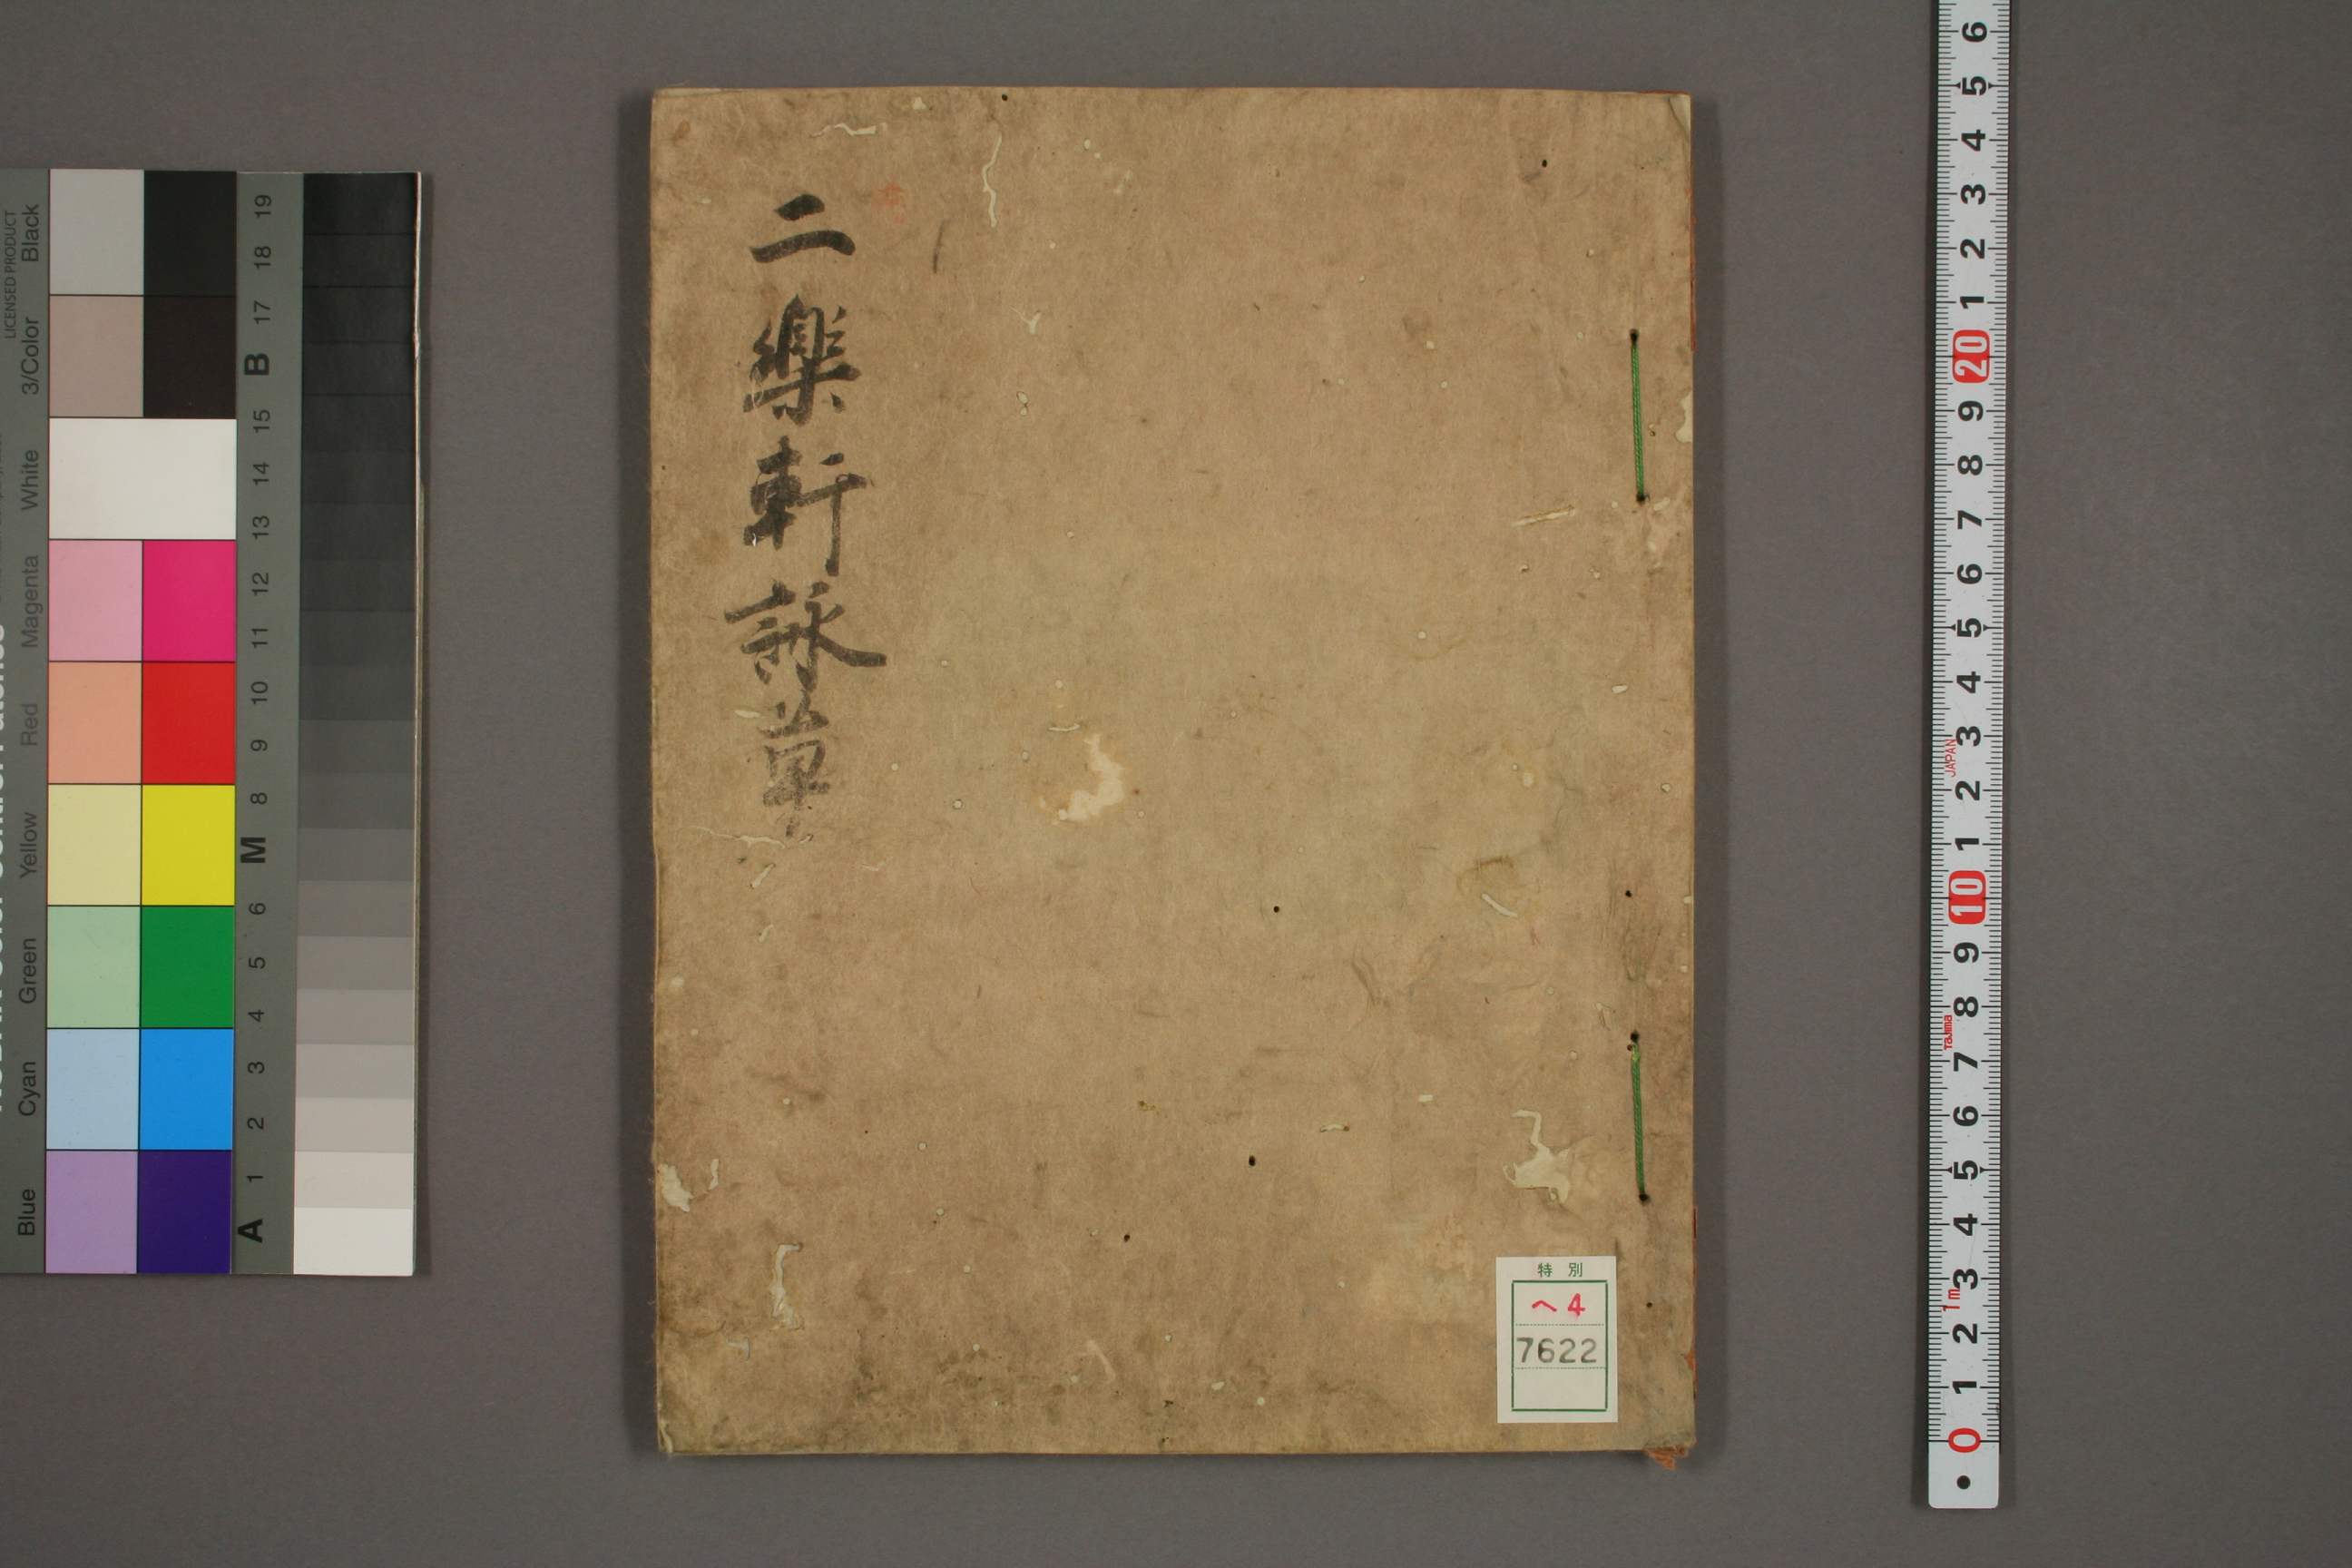 二樂軒詠草
特別
ヘ4
7622
LICENSED PRODUCT
Black
3/Color
White
Magenta
Red
Yellow
Green
Cyan
Blue
19
18
17
B
15
14
13
12
11
10
9
8
M
6
5
4
3
2
1
A
6
5
4
3
2
1
20
9
8
7
6
5
4
3
JAPAN
2
1
10
9
8
Tajima
7
6
5
4
3
1m
2
1
0